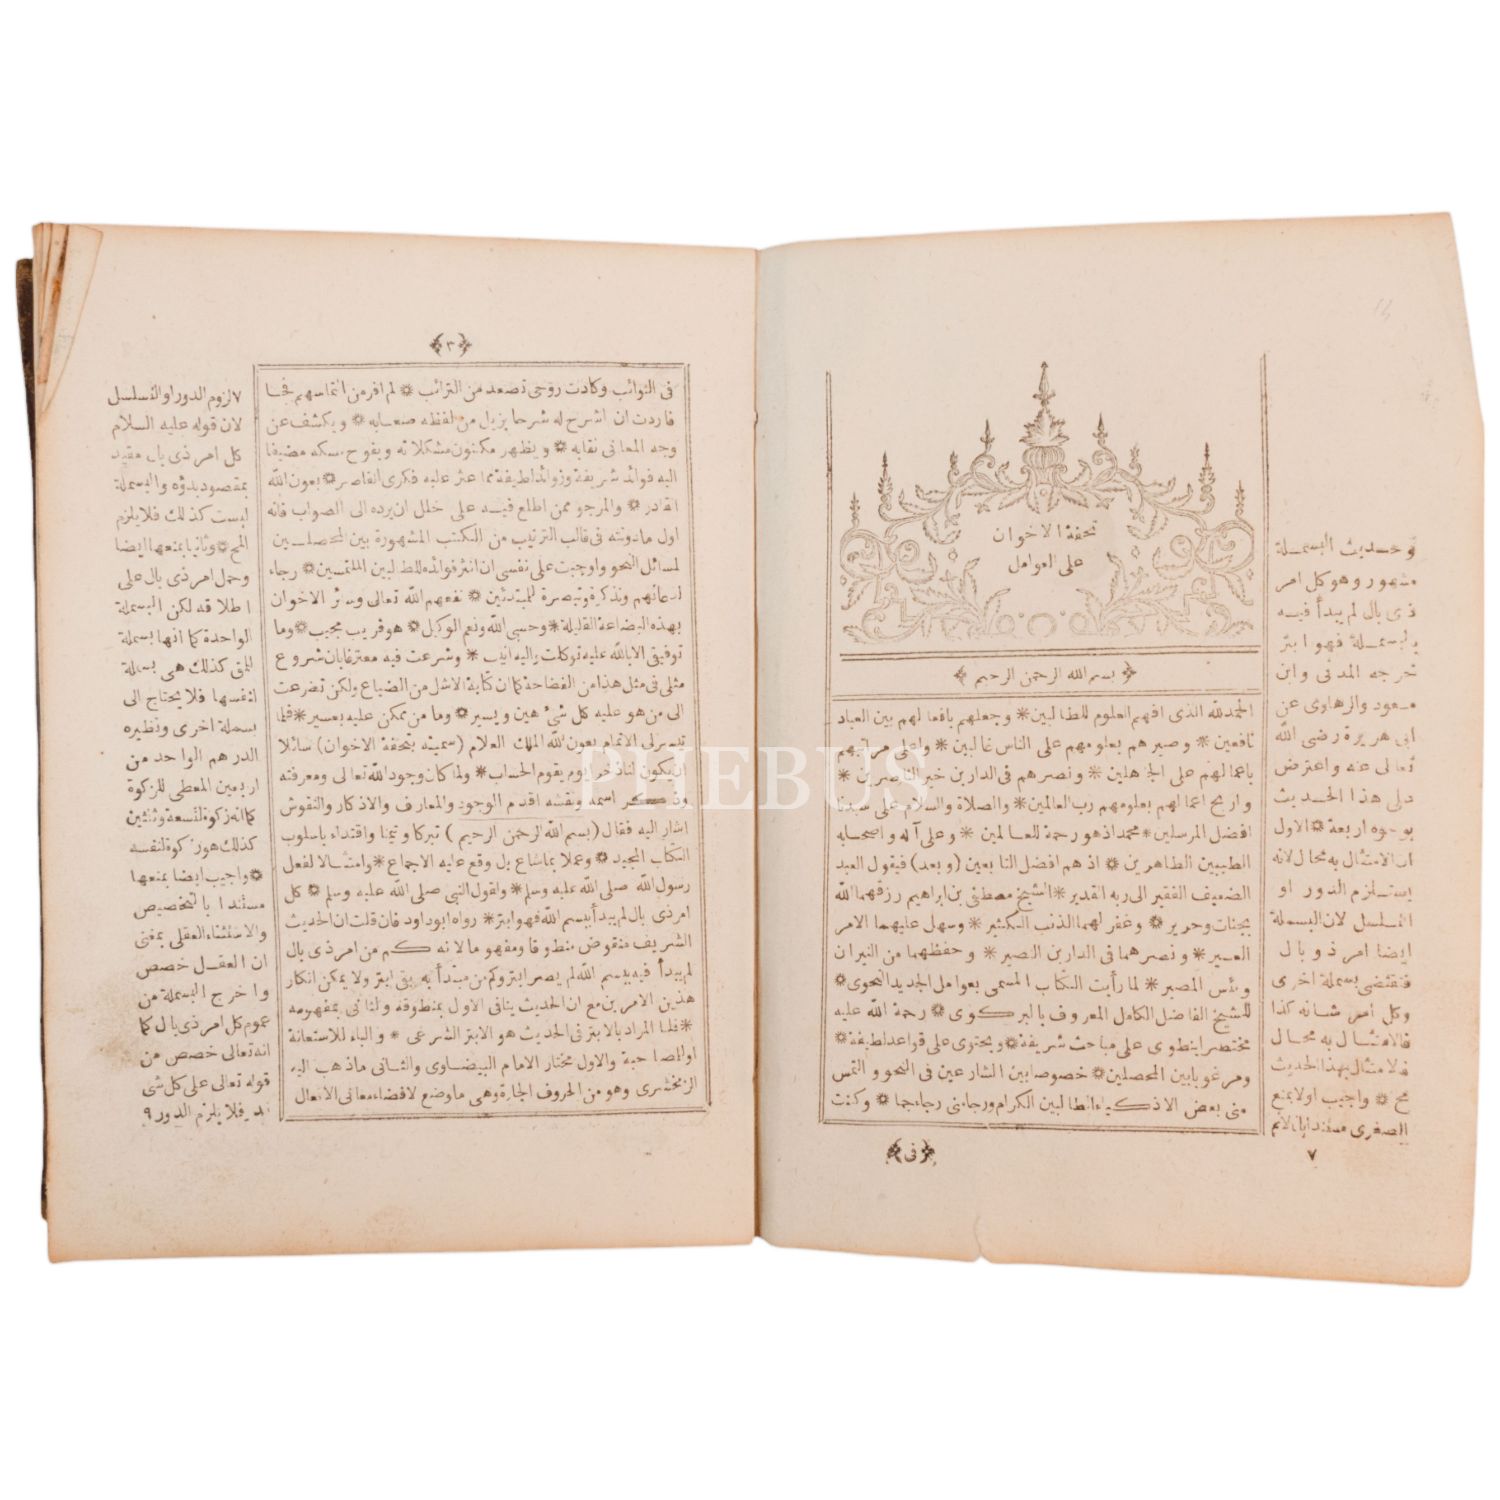 تحفة الاخوان
على العوامل
بسم الله الرحمن الرحيم
الحمدلله الذى افهم العلوم للطالبين * وجعلهم نافعا لهم بين العباد
نافعين * وصبرهم بعلومهم على الناس غالبين * واعلى مراتبهم
باعمالهم على الجاهلين * ونصرهم فى الدارين خير الناصرين *
واربح اعمالهم بعلومهم رب العالمين * والصلاة والسلام على سيدنا
افضل المرسلين * محمد اذ هو رحمة للعالمين * وعلى آله واصحابه
الطيبين الطاهرين * اذ هم افضل التابعين (وبعد) فيقول العبد
الضعيف الفقير الى ربه القدير * الشيخ مصطفى بن ابراهيم رزقهما الله
بجنات وحرير * وغفر لهما الذنب الكثير * وسهل عليهما الامر
العسير * ونصرهما فى الدارين النصير * وحفظهما من النيران
وبئس المصير * لما رأيت الكتاب المسمى بعوامل الجديد النحوى *
للشيخ الفاضل الكامل المعروف بالبركوى * رحمة الله عليه
مختصرا ينطوى على مباحث شريفة * ويحتوى على قواعد لطيفة *
ومرغوبا بين المحصلين * خصوصا بين الشارعين فى النحو والتمس
منى بعض الاذكياء الطالبين الكرام ورجاءنى رجاء جما * وكنت
فى
وحديث البسملة
مشهور وهو كل امر
ذى بال لم يبدأ فيه
بالبسملة فهو ابتر
خرجه المدنى وابن
مسعود والرهاوى عن
ابى هريرة رضى الله
تعالى عنه واعترض
على هذا الحديث
بوجوه اربعة * الاول
ان الامتثال به محال لانه
يستلزم الدور او
التسلسل لان البسملة
ايضا امر ذو بال
فتقتضى بسملة اخرى
وكل امر شانه كذا
فالامتثال به محال
فالامتثال بهذا الحديث
مح * واجيب اولا بمنع
الصغرى مستندا بان لانم
٧
٣
فى النوائب وكادت روحى تصعد من الترائب * لم افر من التماسهم فجا
فاردت ان اشرح له شرحا يزيل من لفظه صعابه * ويكشف عن
وجه المعانى نقابه * ويظهر مكنون مشكلاته ويفوح مسكه مضيفا
اليه فوائد شريفة وزوائد لطيفة مما عثر عليه فكرى القاصر * بعون الله
القادر * والمرجو ممن اطلع فيه على خلل ان يرده الى الصواب فانه
اول ما دونته فى قالب الترتيب من الكتب المشهورة بين المحصلين
لمسائل النحو واوجبت على نفسى ان انثر فوائده للطالبين الملتمسين * رجاء
لدعائهم وتذكرة وتبصرة للمبتدئين * نفعهم الله تعالى وسائر الاخوان
بهذه البضاعة القليلة * وحسبى الله ونعم الوكيل * هو قريب مجيب * وما
توفيقى الا بالله عليه توكلت واليه انيب * وشرعت فيه معترفا بان شروع
مثلى فى مثل هذا من الفضاحة كما ان كتابة الاشل من الضياع ولكن تضرعت
الى من هو عليه كل شئ هين ويسير * وما من ممكن عليه بعسير * فلما
تيسر لى الاتمام بعون الله الملك العلام (سميته بتحفة الاخوان) سائلا
ان يكون لنا ذخرا يوم يقوم الحساب * ولما كان وجود الله تعالى ومعرفته
وذكر اسمه ونقشه اقدم الوجود والمعارف والاذكار والنقوش
اشار اليه فقال (بسم الله الرحمن الرحيم) تبركا وتيمنا واقتداء باسلوب
الكتاب المجيد * وعملا بما شاع بل وقع عليه الاجماع * وامتثالا لفعل
رسول الله صلى الله عليه وسلم * ولقول النبى صلى الله عليه وسلم * كل
امر ذى بال لم يبدأ ببسم الله فهو ابتر * رواه ابو داود فان قلت ان الحديث
الشريف منقوض منطوقا ومفهوما لانه كم من امر ذى بال
لم يبدأ فيه ببسم الله لم يصر ابتر وكم من مبتدأ به بقى ابتر ولا يمكن انكار
هذين الامرين مع ان الحديث ينافى الاول بمنطوقه والثانى بمفهومه
* قلنا المراد بالابتر فى الحديث هو الابتر الشرعى * والباء للاستعانة
او المصاحبة والاول مختار الامام البيضاوى والثانى ما ذهب اليه
الزمخشرى وهو من الحروف الجارة وهى ما وضع لافضاء معانى الافعال
٧ لزوم الدور او التسلسل
لان قوله عليه السلام
كل امر ذى بال مقيد
بمقصود بدؤه والبسملة
ليست كذلك فلا يلزم
المح * وثانيا بمنعها ايضا
وحمل امر ذى بال على
اطلاقه لكن البسملة
الواحدة كما انها بسملة
للمق كذلك هى بسملة
لنفسها فلا يحتاج الى
بسملة اخرى ونظيره
الدرهم الواحد من
اربعين المعطى للزكوة
كما انه زكوة لتسعة وثلثين
كذلك هو زكوة لنفسه
* واجيب ايضا بمنعها
مستندا بالتخصيص
والاستثناء العقلى بمعنى
ان العقل خصص
واخرج البسملة من
عموم كل امر ذى بال كما
انه تعالى خصص من
قوله تعالى على كل شى
قدير فلا يلزم الدور ٩
THEBUS